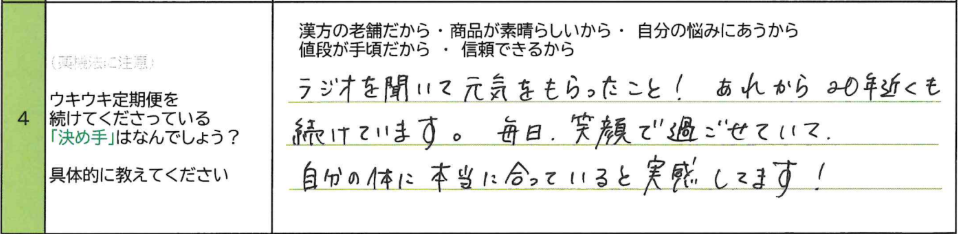 漢方の老舗だから・商品が素晴らしいから・ 自分の悩みにあうから
値段が手頃だから ・ 信頼できるから
(薬機法に注意)
4
ウキウキ定期便を
続けてくださっている
「決め手」はなんでしょう？
具体的に教えてください
ラジオを聞いて元気をもらったこと! あれから20年近くも
続けています。 毎日.笑顔で過ごせていて.
自分の体に本当に合っていると実感してます!